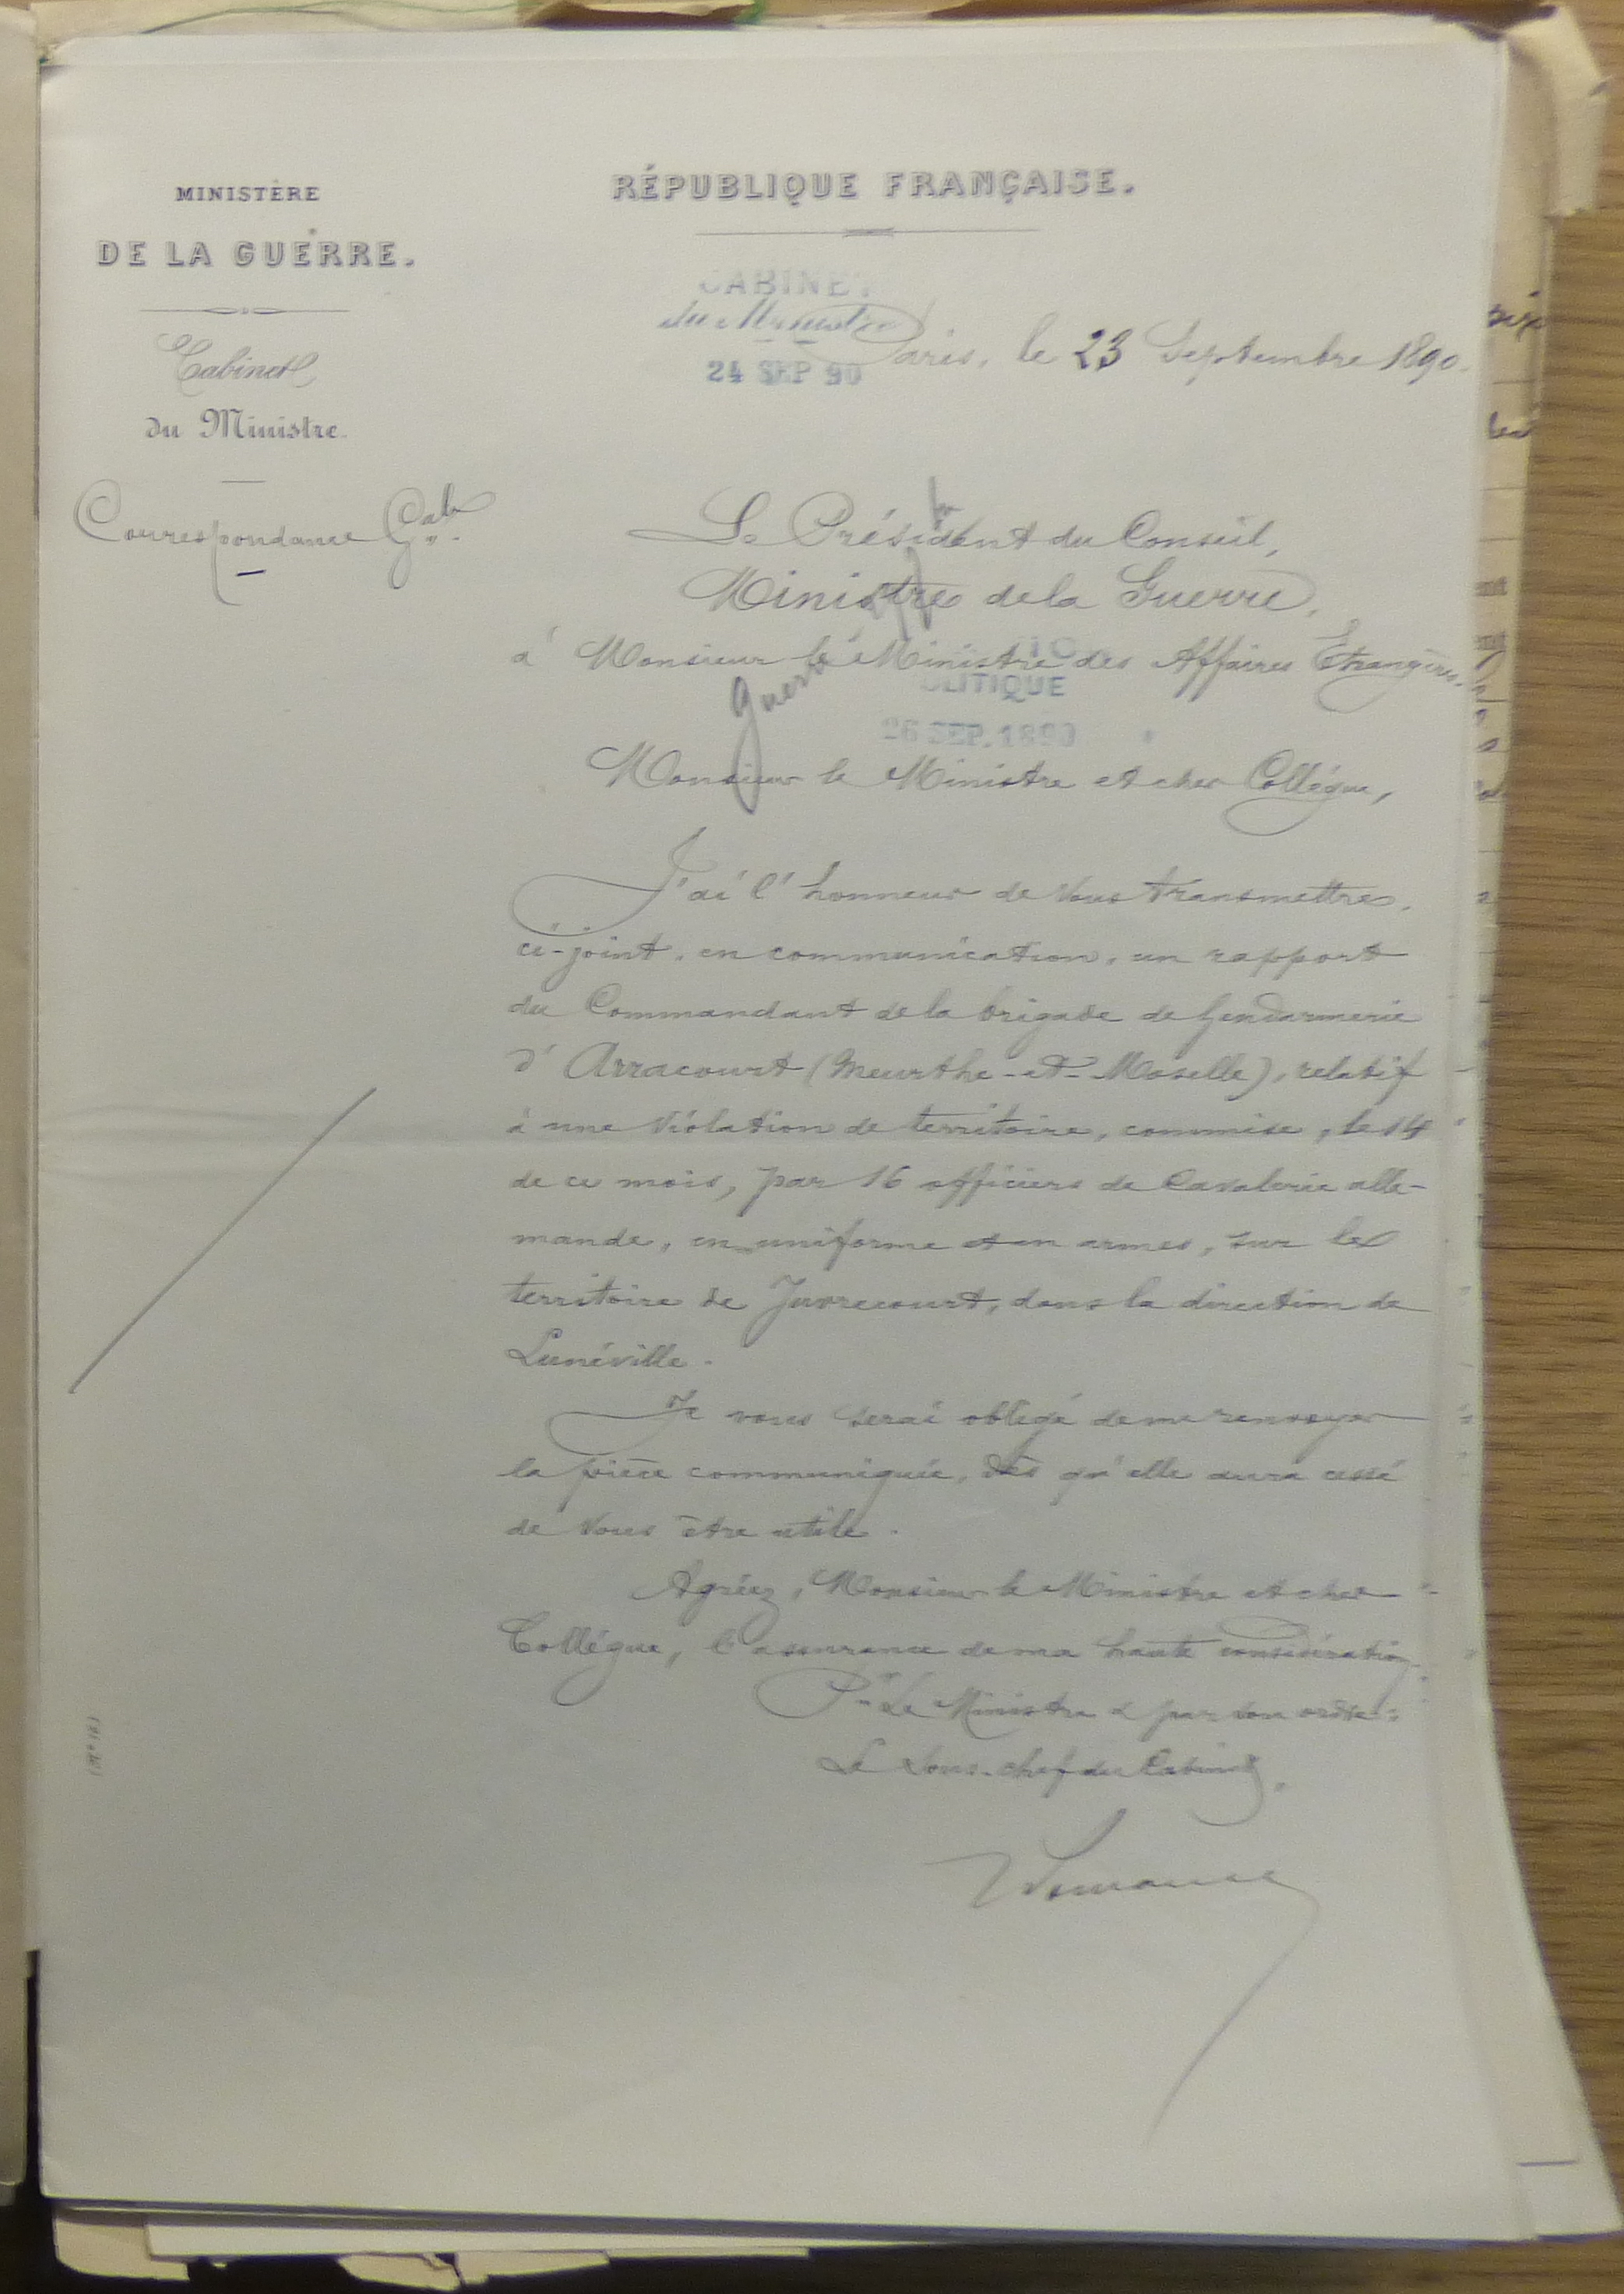 MINISTÈRE
DE LA GUERRE.
Cabinet
du Ministre.
Correspondance Gale.
RÉPUBLIQUE FRANÇAISE.
CABINET
du Ministre
24 SEP 90
Paris, le 23 Septembre 1890.
Le Président du Conseil,
Ministre de la Guerre,
à Monsieur le Ministre des Affaires Etrangères.
OLITIQUE
26 SEP. 1890
Guerre
Monsieur le Ministre et cher Collègue,
J'ai l'honneur de vous transmettre,
ci-joint, en communication, un rapport
du Commandant de la brigade de Gendarmerie
d'Arracourt (Meurthe-et-Moselle), relatif
à une violation de territoire, commise, le 14
de ce mois, par 16 officiers de Cavalerie alle-
mande, en uniforme et en armes, sur le
territoire de Juvrecourt, dans la direction de
Lunéville.
Je vous serai obligé de me renvoyer
la pièce communiquée, dès qu'elle aura cessé
de vous être utile.
Agréez, Monsieur le Ministre et cher
Collègue, l'assurance de ma haute considération.
Pr. Le Ministre & par son ordre:
Le Sous-chef du Cabinet,